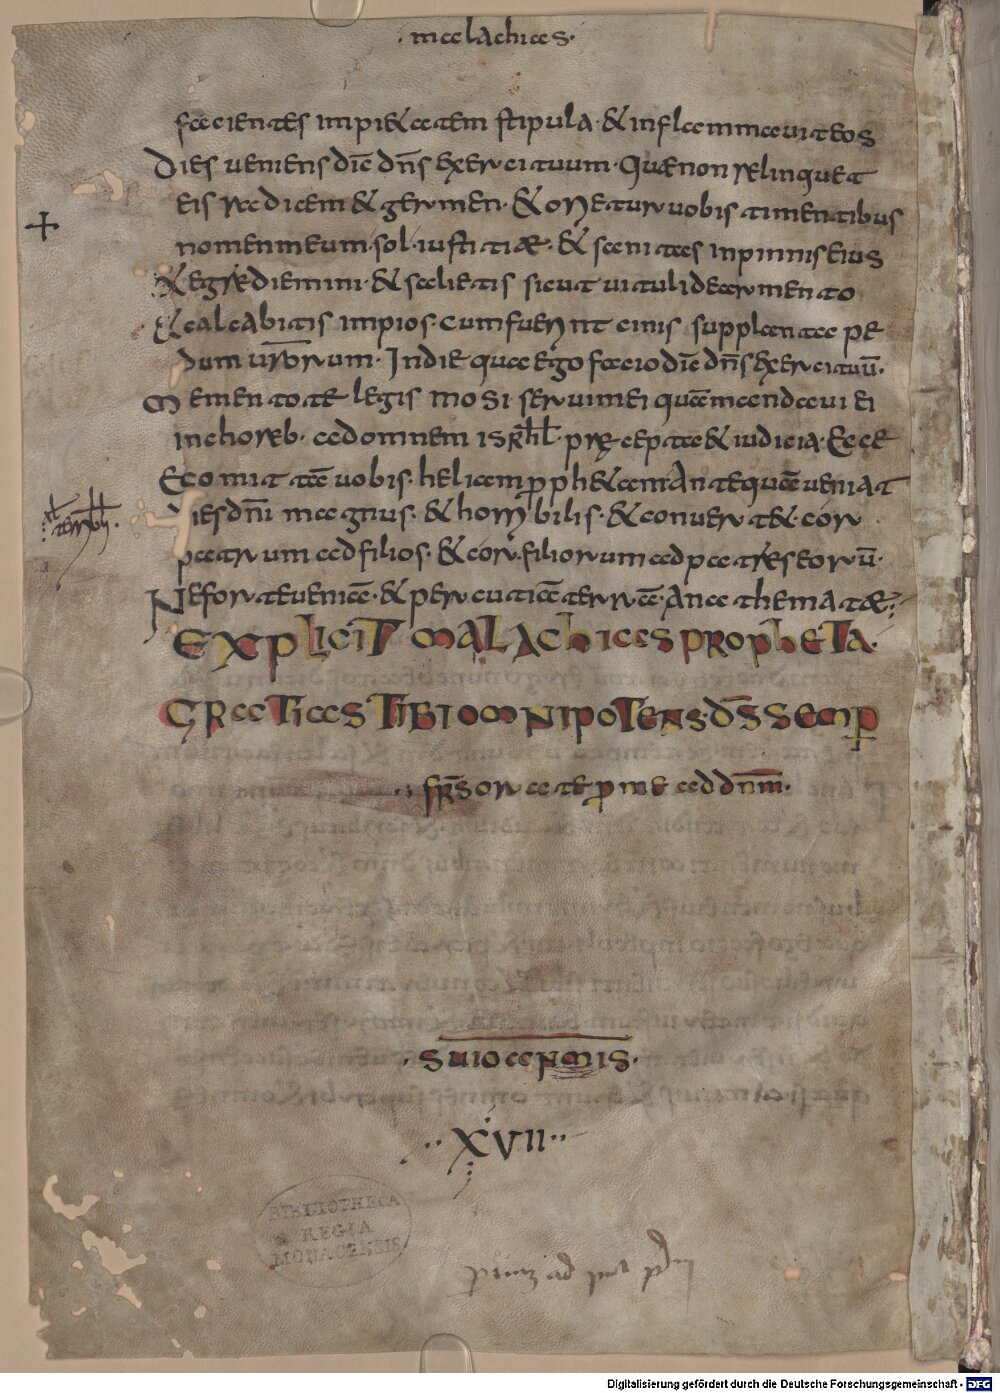 · malachias ·
facientes impi&atem stipula · & inflammauit eos
Dies ueniens diē dn̄s exercituum · Quæ non relinquet
eis radicem & germen · & orietur uobis timentibus
nomen meum · sol · iustitiæ · & sanitas in pinnis eius
& egrediemini · & salietis sicut uituli de armento
& calcabitis impios · cum fuerint cinis sub planta pe
dum urōrum · In die qua ego facio diē dn̄s exercituū ·
Mementote legis mosi serui mei quā mandaui ei
in choreb · ad omnem isrhl · præcepta & iudicia · Ecce
Ego mittā uobis · heliam pph&am · Antequā ueniat
dies dn̄i magnus · & horribilis · & conuert& · cor ·
patrum ad filios · & cor · filiorum ad patres eorū ·
Ne forte ueniā · & percutiā terrā · Anathematæ ·
Explicit Malachias propheta ·
Gratias tibi omnipotens · dn̄s semp
frs̄ orate p me ad dnm̄ ·
· suioanmis ·
·· XVII ··
BIBLIOTHECA
REGIA
MONACENSIS
Digitalisierung gefördert durch die Deutsche Forschungsgemeinschaft - DFG